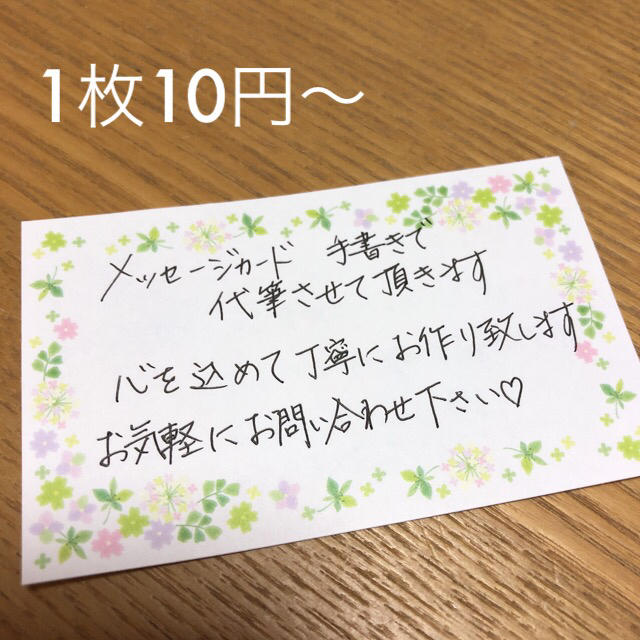 1枚10円〜
メッセージカード 手書きで
代筆させて頂きます
心を込めて丁寧にお作り致します
お気軽にお問い合わせ下さい♡